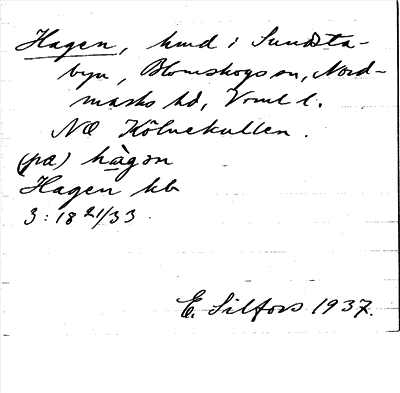 Hagen, hmd i Sundsta-
byn, Blomskogs sn, Nord-
marks hd, Vrml l.
NO Kölnekullen.
(på) hàgən
Hagen hb
3:18 21/33.
E. Silfors 1937.